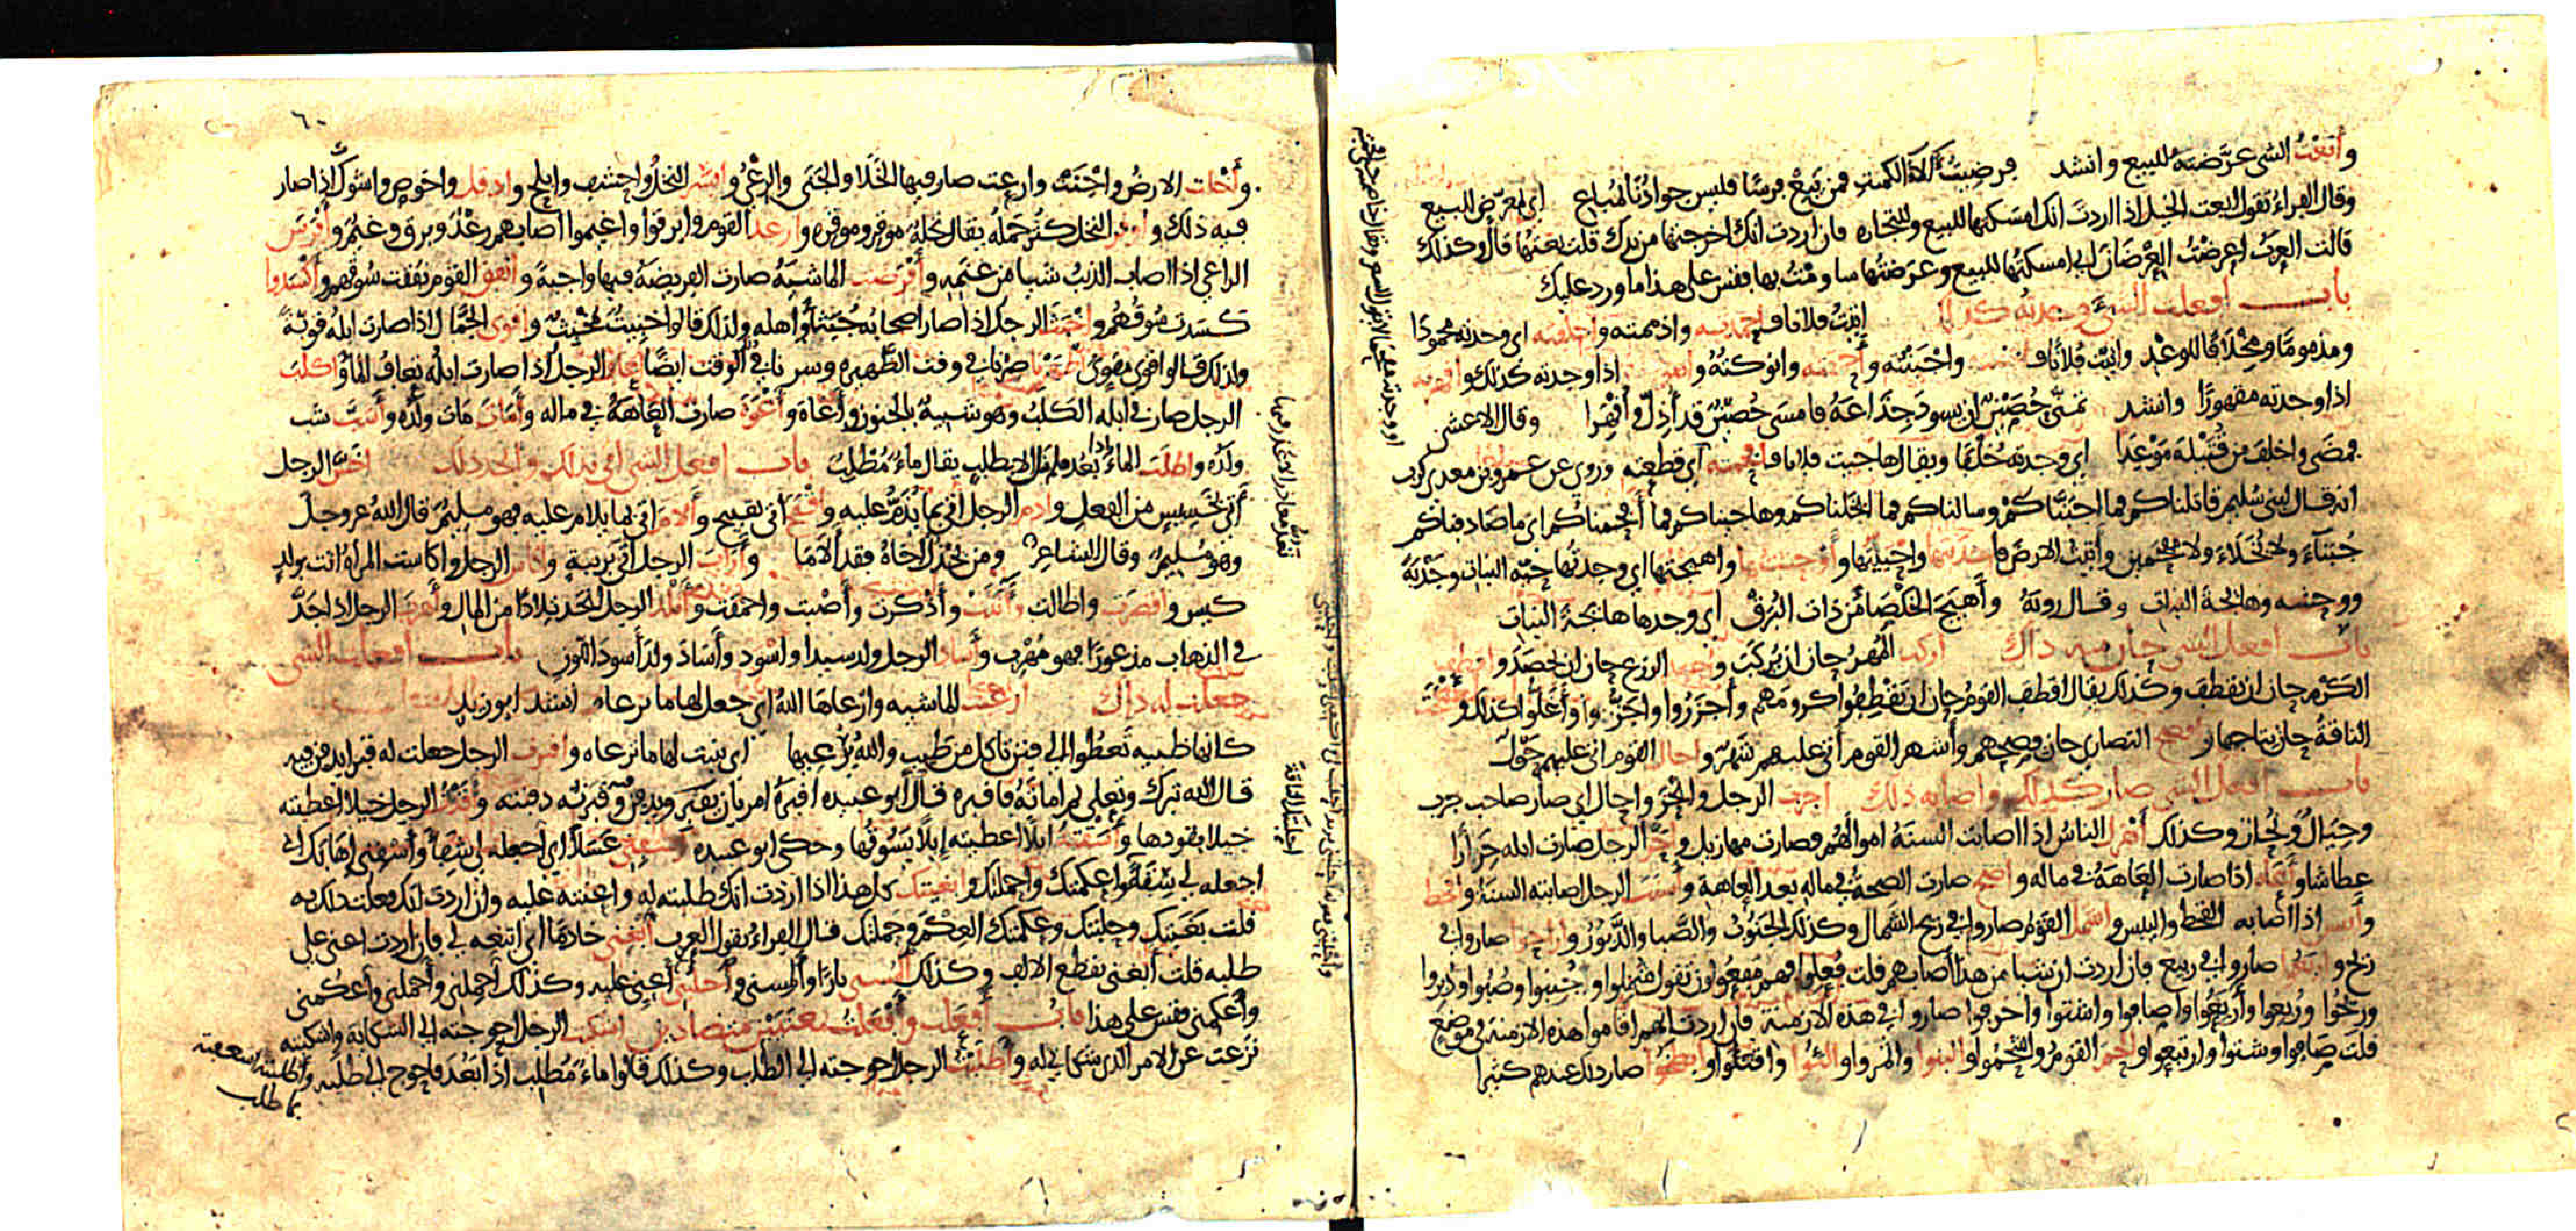 وأبعتُ الشى عرّضته للبيع وانشد فرضيتُ آلاء الكميت فمن يَبِعْ فرسًا فليس جوادُنا بمُباع اى بمعرّض للبيع
وقال الفراء تقول ابعت الخيل اذا اردتَ انك امسكتها للبيع وللتجارة فان اردت انك اخرجتها من يدك قلت بعتها قال وكذلك
قالت العرب اعرضتُ العِرْضان اى امسكتها للبيع وعرضتها ساومْتُ بها فقس على هذا ما ورد عليك
باب افعلت الشىَ وجدته كذلك اتيتُ فلانا فاحمدته واذممته واخلفته اى وجدته محمودًا
ومذمومًا ومخْلافًا للوعْد واتيت فلانًا وأجبنته و وانوكتُهُ و اذا وجدته كذلك واقهرته
اذا وجدته مقهورًا وانشد تمنّى حُصَيْنٌ ان يسود جِذاعَهُ فامسى حُصَيْنٌ قد أُذِلّ وأُقهِرا وقال الاعشى
فمضى واخلف من قُتَيلة مَوْعِدا اى وجدته خُلْفًا ويقال هاجيت فلانا فافحمته اى قطعته وروى عن عمرو بن معدى كرب
انه قال لبنى سُليم قاتلناكم فما اجبنّاكم وسالناكم فما ابخلناكم وهاجيناكم فما أفحمناكم اى ما صادفناكم
جُبَنآءَ ولا بُخَلآءَ ولا مفحمين وأتيتُ الارضَ فاجدبتها واحييتها واوحشتها واهيجتها اى وجدتها حيّه النبات وجَدْبَهُ
ووحشه وهائجة النبات وقال روبة وأهيجَ الخَلْصاءَ من ذات البُرَقْ اى وجدها هائجة النبات
باب افعل الشى حان منه ذاك اركب المُهرُ حان ان يُركَبَ واحصد الزرع حان ان يُحصَد واقطف
الكَرْم حان ان يُقطف وكذلك يقال اقطف القومُ حان ان يَقْطِفُوا كرومهم وأَجْزَزُوا واجَزُّوا وأغَلُّوا كذلك و
الناقةُ حان نتاجها و افصح النصارى حان فِصحهم وأشهر القوم أتى عليهم شَهْرٌ واحال القوم اتى عليهم حَوْل
باب افعل الشى صار كذلك واصابه ذلك اجرب الرجل وانْحَزَ واحال اى صار صاحب جرب
وحِيال ونُحاز وكذلك أهزل الناسُ اذا اصابت السنةُ اموالهُم فصارت مهازيل واحَرّ الرجل صارت ابله حِرَارا
عطاشا وأعاهَ اذا صارت العاهةُ فى ماله واصحّ صارت الصحةُ فى ماله بعد العاهة وأسنَتَ الرجل اصابته السنةُ واقحط
وأيبس اذا أصابه القحط واليبس واشمل القومُ صاروا فى ريح الشمال وكذلك الجَنُوبُ والصَّبا والدَّبُورُ واراحوا صاروا فى
ريح واربعوا صاروا فى ربيع فان اردت ان شيا من هذا أصابهم قلت فُعِلوا فهم مفعُولون تقول شُمِلوا وجُنِبوا وصُبُوا ودُبروا
ورِيحُوا ورُبعوا وأربَعُوا واصافوا واشتوا واخرفوا صاروا فى هذه الازمنة فان اردت انهم اقاموا هذه الازمنة فى موضع
قلتَ صَافوا وشتوا وارتبعوا والحم القومُ واشحمُوا والبنوا واتمروا والبَوُا واقثَوُا وابطخوا صار ذلك عندهم كثيرا
او وجدته مُفْحَمًا لا يقول الشعر
وأخلت الارضُ واجْنَتْ وارعت صار فيها الخَلا والجَنَى والرِعْىُ وابسر النخلُ واحشف وابلح وادقل واخوص واشوك اذا صار
فيه ذلك واوقر النخل كثُر حَمْلُه يقال نخلة موقِر وموقرة وارعد القوم وابرقوا واغيموا اصابهم رعْدٌ وبرق وغيْمٌ وأفرَسَ
الراعى اذا اصاب الذيبُ شيا من غنَمِه وأفْرَضَت الماشيةُ صارت الفريضة فيها واجبة وانفق القوم نفقت سُوقهم وأكسدوا
كسَدت سُوقُهُم واخبَثَ الرجل اذا صار اصحابُه خُبَثاً وأهله ولذلك قالوا خبيثٌ مُخبِثٌ واقوى الجَمّال اذا صارت ابلهُ قويّةً
ولذلك قالوا قوِىّ مُقوٍ وأظهرْنا صِرْنا فى وقت الظهيرة وسرنا فى الوقت ايضًا واعاف الرجل اذا صارت ابلُه تعافُ الماءَ واكلبَ
الرجل صار فى ابله الكلبُ وهو شبيهٌ بالجنون وأعَاهَ وأعْوَهَ صارت العَاهَةُ فى ماله وأمَاتَ مَاتَ ولَدُه وأشَبَّ شبّ
ولَدُه واطلَبَ الماءُ اذا بَعُد فلم يُنَل الا بطلب يقال ماءٌ مُطْلِبٌ باب افعل الشى اتى بذلك واتخذ ذلك اخَسَّ الرجل
أتى بخسيسٍ من الفعل واذمّ الرجل اتى بما يُذَمُّ عليه واقبحَ اتى بقبيح وألامَ اتى بما يلام عليه فهو مليمٌ قال الله عز وجل
وهو مُلِيمٌ وقال الشاعر ومن يخذُل اخاهُ فقد ألاما وأرابَ الرجل اتى بريبةٍ واكاس الرجل واكاست المرأة اتت بولدٍ
كيّس واقصَرت واطالت وآنثت وأذْكرت وأصْبت واحمقت وأتلَدَ الرجل اتخذ تِلادًا من المال وأهرب الرجل اذا جَدَّ
فى الذهاب مذعورًا فهو مُهْرِب وأساد الرجل ولد سيدا واسْوَدَ وأسَادَ ولدَ أسودَ اللون باب افعلت الشى
جعلت له ذاك ارعَيتُ الماشيه وارعاهَا اللهُ اى جعل لها ما ترعاه انشد ابو زيد
كانها ظبيه تَعطُوا الى فنن تاكل من طيب واللهُ يُرْعيها اى ينبت لها ما ترعاه واقبرت الرجل جعلت له قبرا يدفن فيه
قال الله تبرك وتعلى ثم اماتَهُ فاقبره قال أبو عبيده اقبرَهُ امر بان يُقبَر ويدفن وقبرتُه دفنته وأقَدْتُ الرجل خيلا اعطيته
خيلا يقودها وأسَقْتهُ ابلًا اعطيته إبلًا يَسُوقُها وحكى ابو عبيده أشفِنى عَسَلًا اى اجعله لى شِفَاءً وأسْقنى إهَابَك اى
اجعله لى سِقَآءً واعكمتك واحملتك وابغيتك كل هذا اذا اردت انك طلبته له واعنته عليه وان اردتَ انك فعلت ذلك به
قلت بَغَيتك وحلبتك وعكمتك العِكْمَ وحملتك قال الفراء يقول العرب أبْغِنى خادمًا اى ابتغه لى فان اردت اعنى على
طلبه قلت أبغنى بقطع الالف وكذلك المُسنى نارًا وألمِسنى واحلبنى أعنى عليه وكذلك احمِلنى وأحملنى وأعكمنى
وأعكمنى فقس على هذا باب أفعلت وأفعلتُ بمعنيين متضادين اشكيتُ الرجل احوجته الى الشكاية واشكيته
نزعت عن الامر الذى شكانى له وأطْلَبْتُ الرجل احوجته الى الطلب وكذلك قالوا ماءٌ مُطلِب اذا بَعُد فاحوج الى طلبه وأطلبته اسعفته
بما طلب